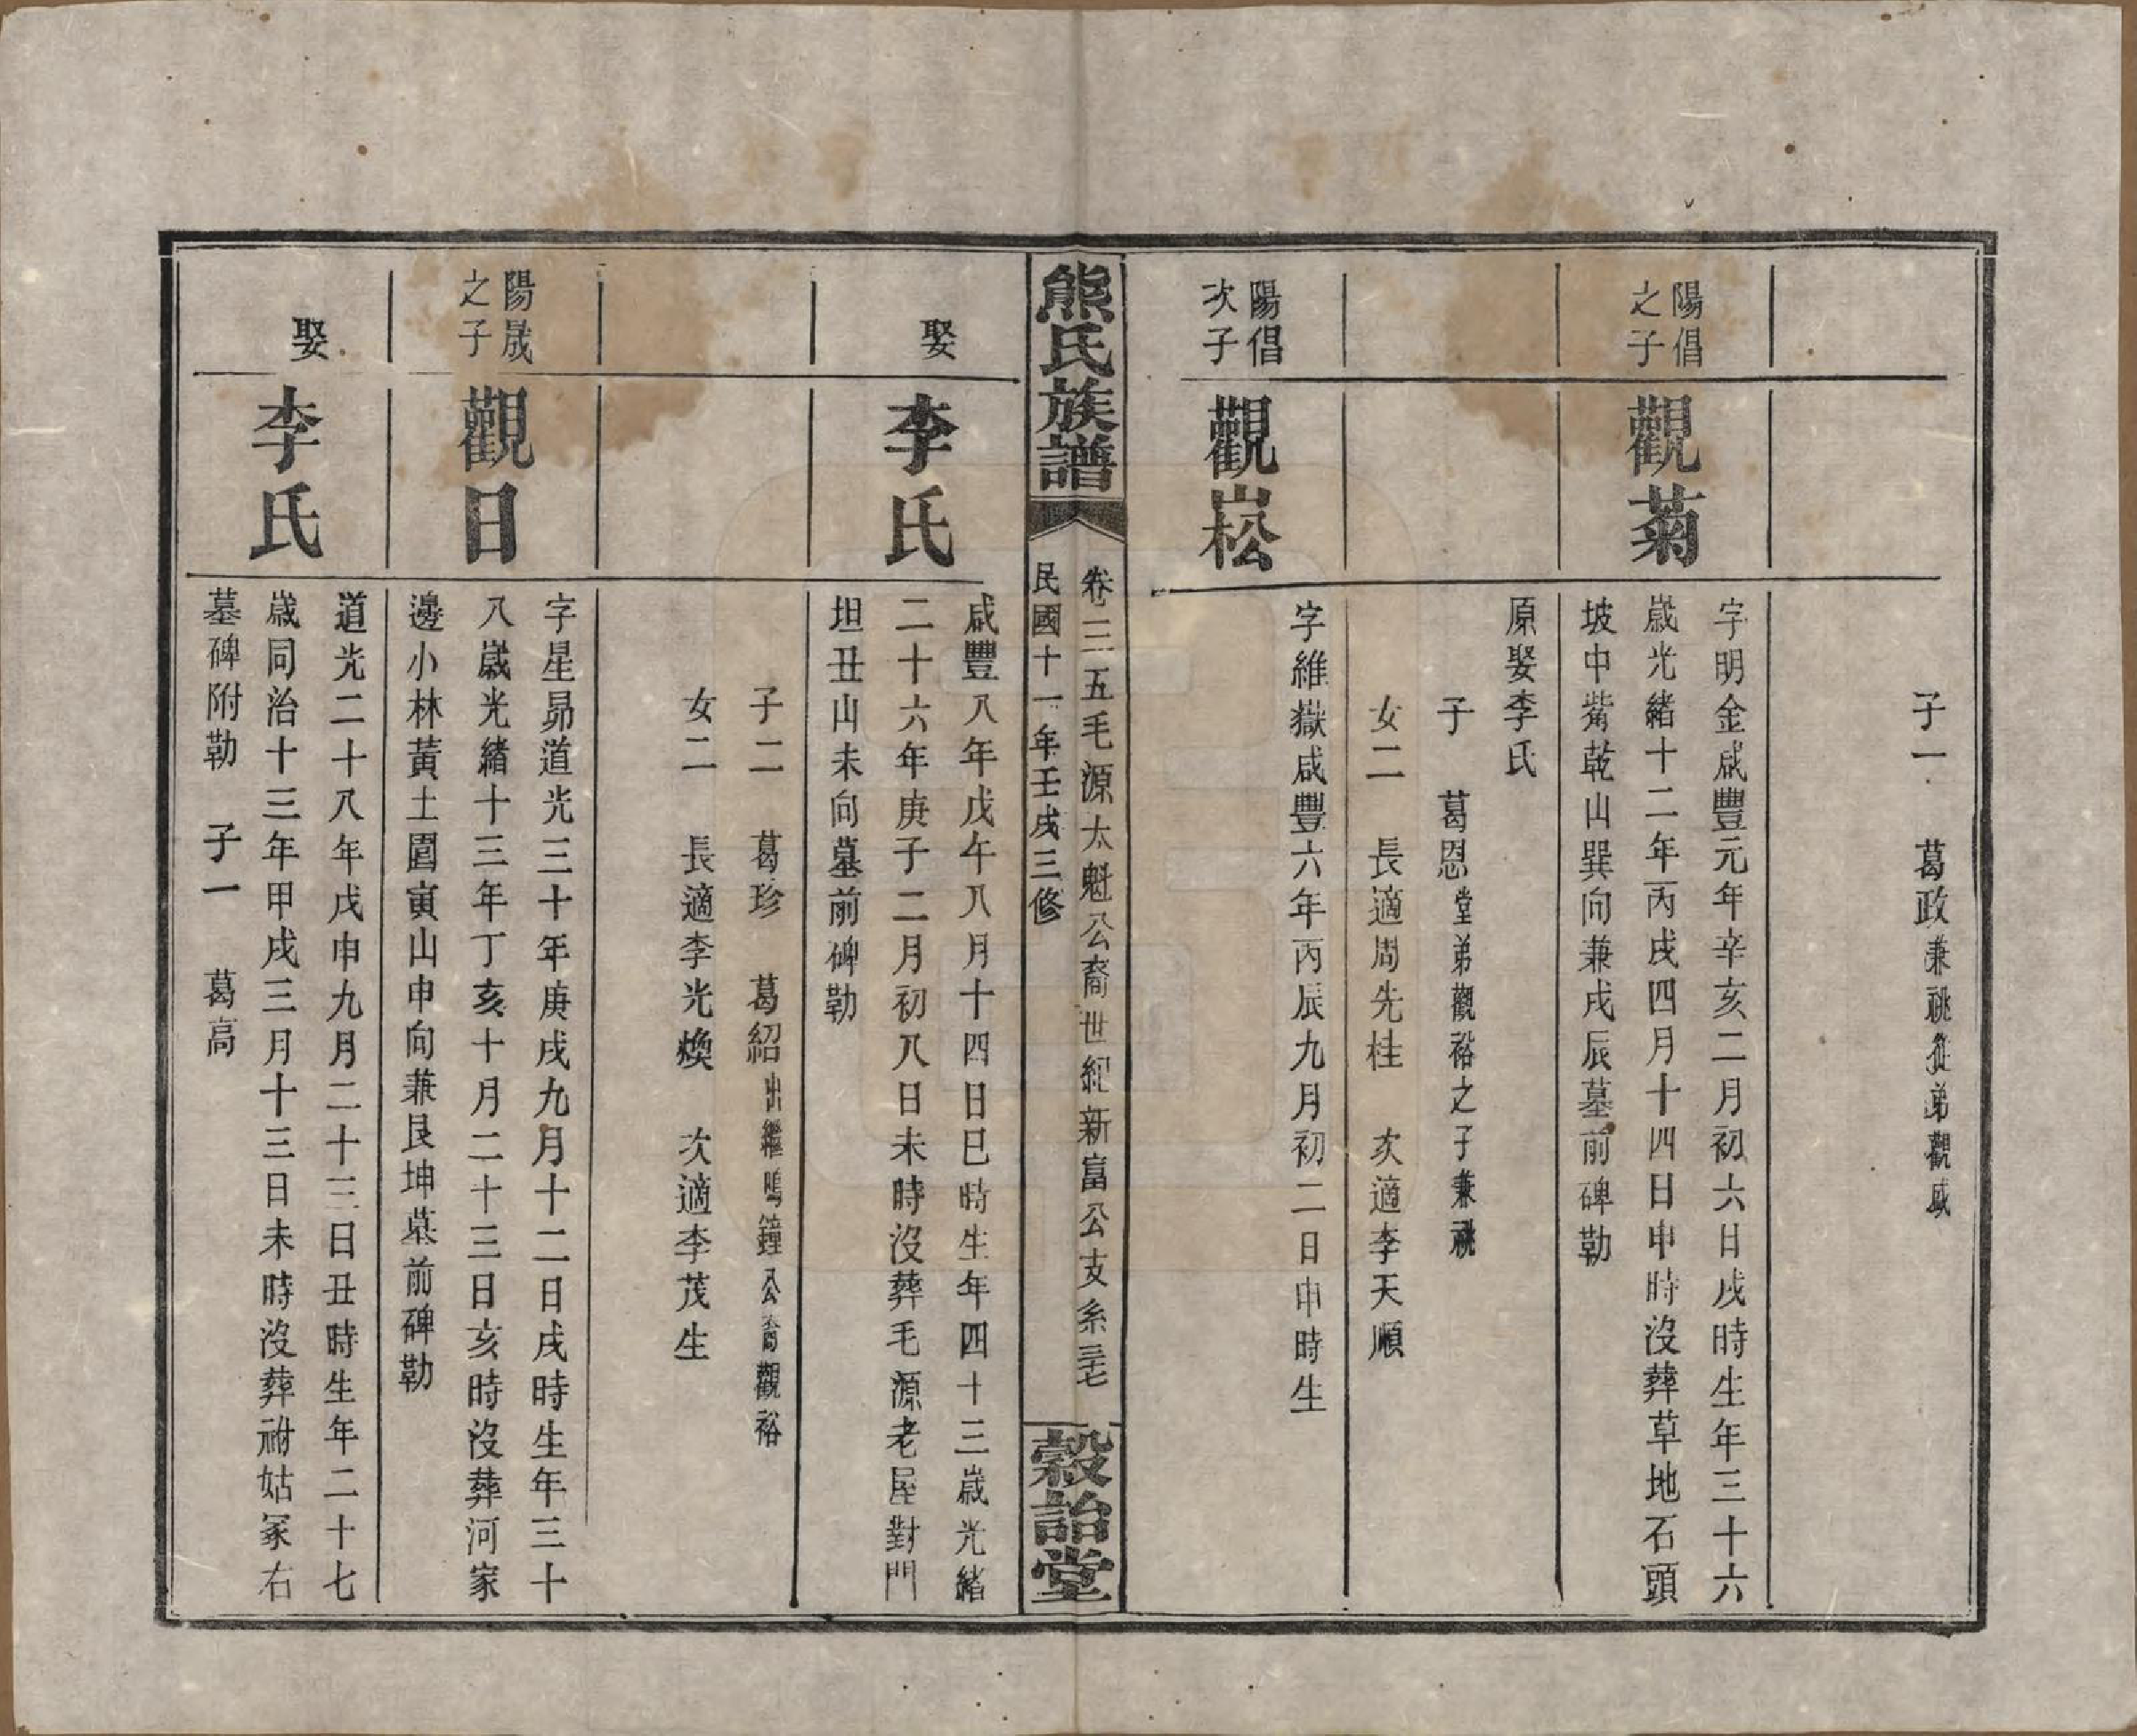 子一　葛政兼祧從弟觀威
陽倡
之子
觀菊
字明金咸豐元年辛亥二月初六日戌時生年三十六
歲光緒十二年丙戌四月十四日申時沒葬草地石頭
坡中嘴乾山巽向兼戌辰墓前碑勒
原娶李氏
子　葛恩堂弟觀裕之子兼祧
女二　長適周先桂　次適李天順
陽倡
次子
觀崧
字維嶽咸豐六年丙辰九月初二日申時生
熊氏族譜
卷三五毛源太魁公裔世紀新富公支系三七
民國十一年壬戌三修
穀詒堂
娶
李氏
咸豐八年戊午八月十四日巳時生年四十三歲光緒
二十六年庚子二月初八日未時沒葬毛源老屋對門
坦丑山未向墓前碑勒
子二　葛珍　葛紹出繼鳴鐘公裔觀裕
女二　長適李光煥　次適李茂生
陽晟
之子
觀日
字星昴道光三十年庚戌九月十二日戌時生年三十
八歲光緒十三年丁亥十月二十三日亥時沒葬河家
邊小林黃土圍寅山申向兼艮坤墓前碑勒
娶
李氏
道光二十八年戊申九月二十三日丑時生年二十七
歲同治十三年甲戌三月十三日未時沒葬祔姑冢右
墓碑附勒　子一　葛高